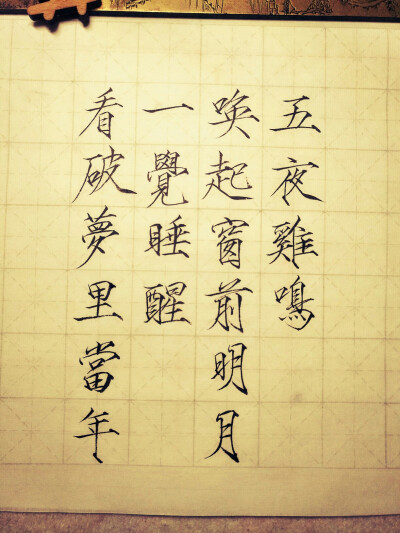 五夜雞鳴
喚起窗前明月
一覺睡醒
看破夢里當年